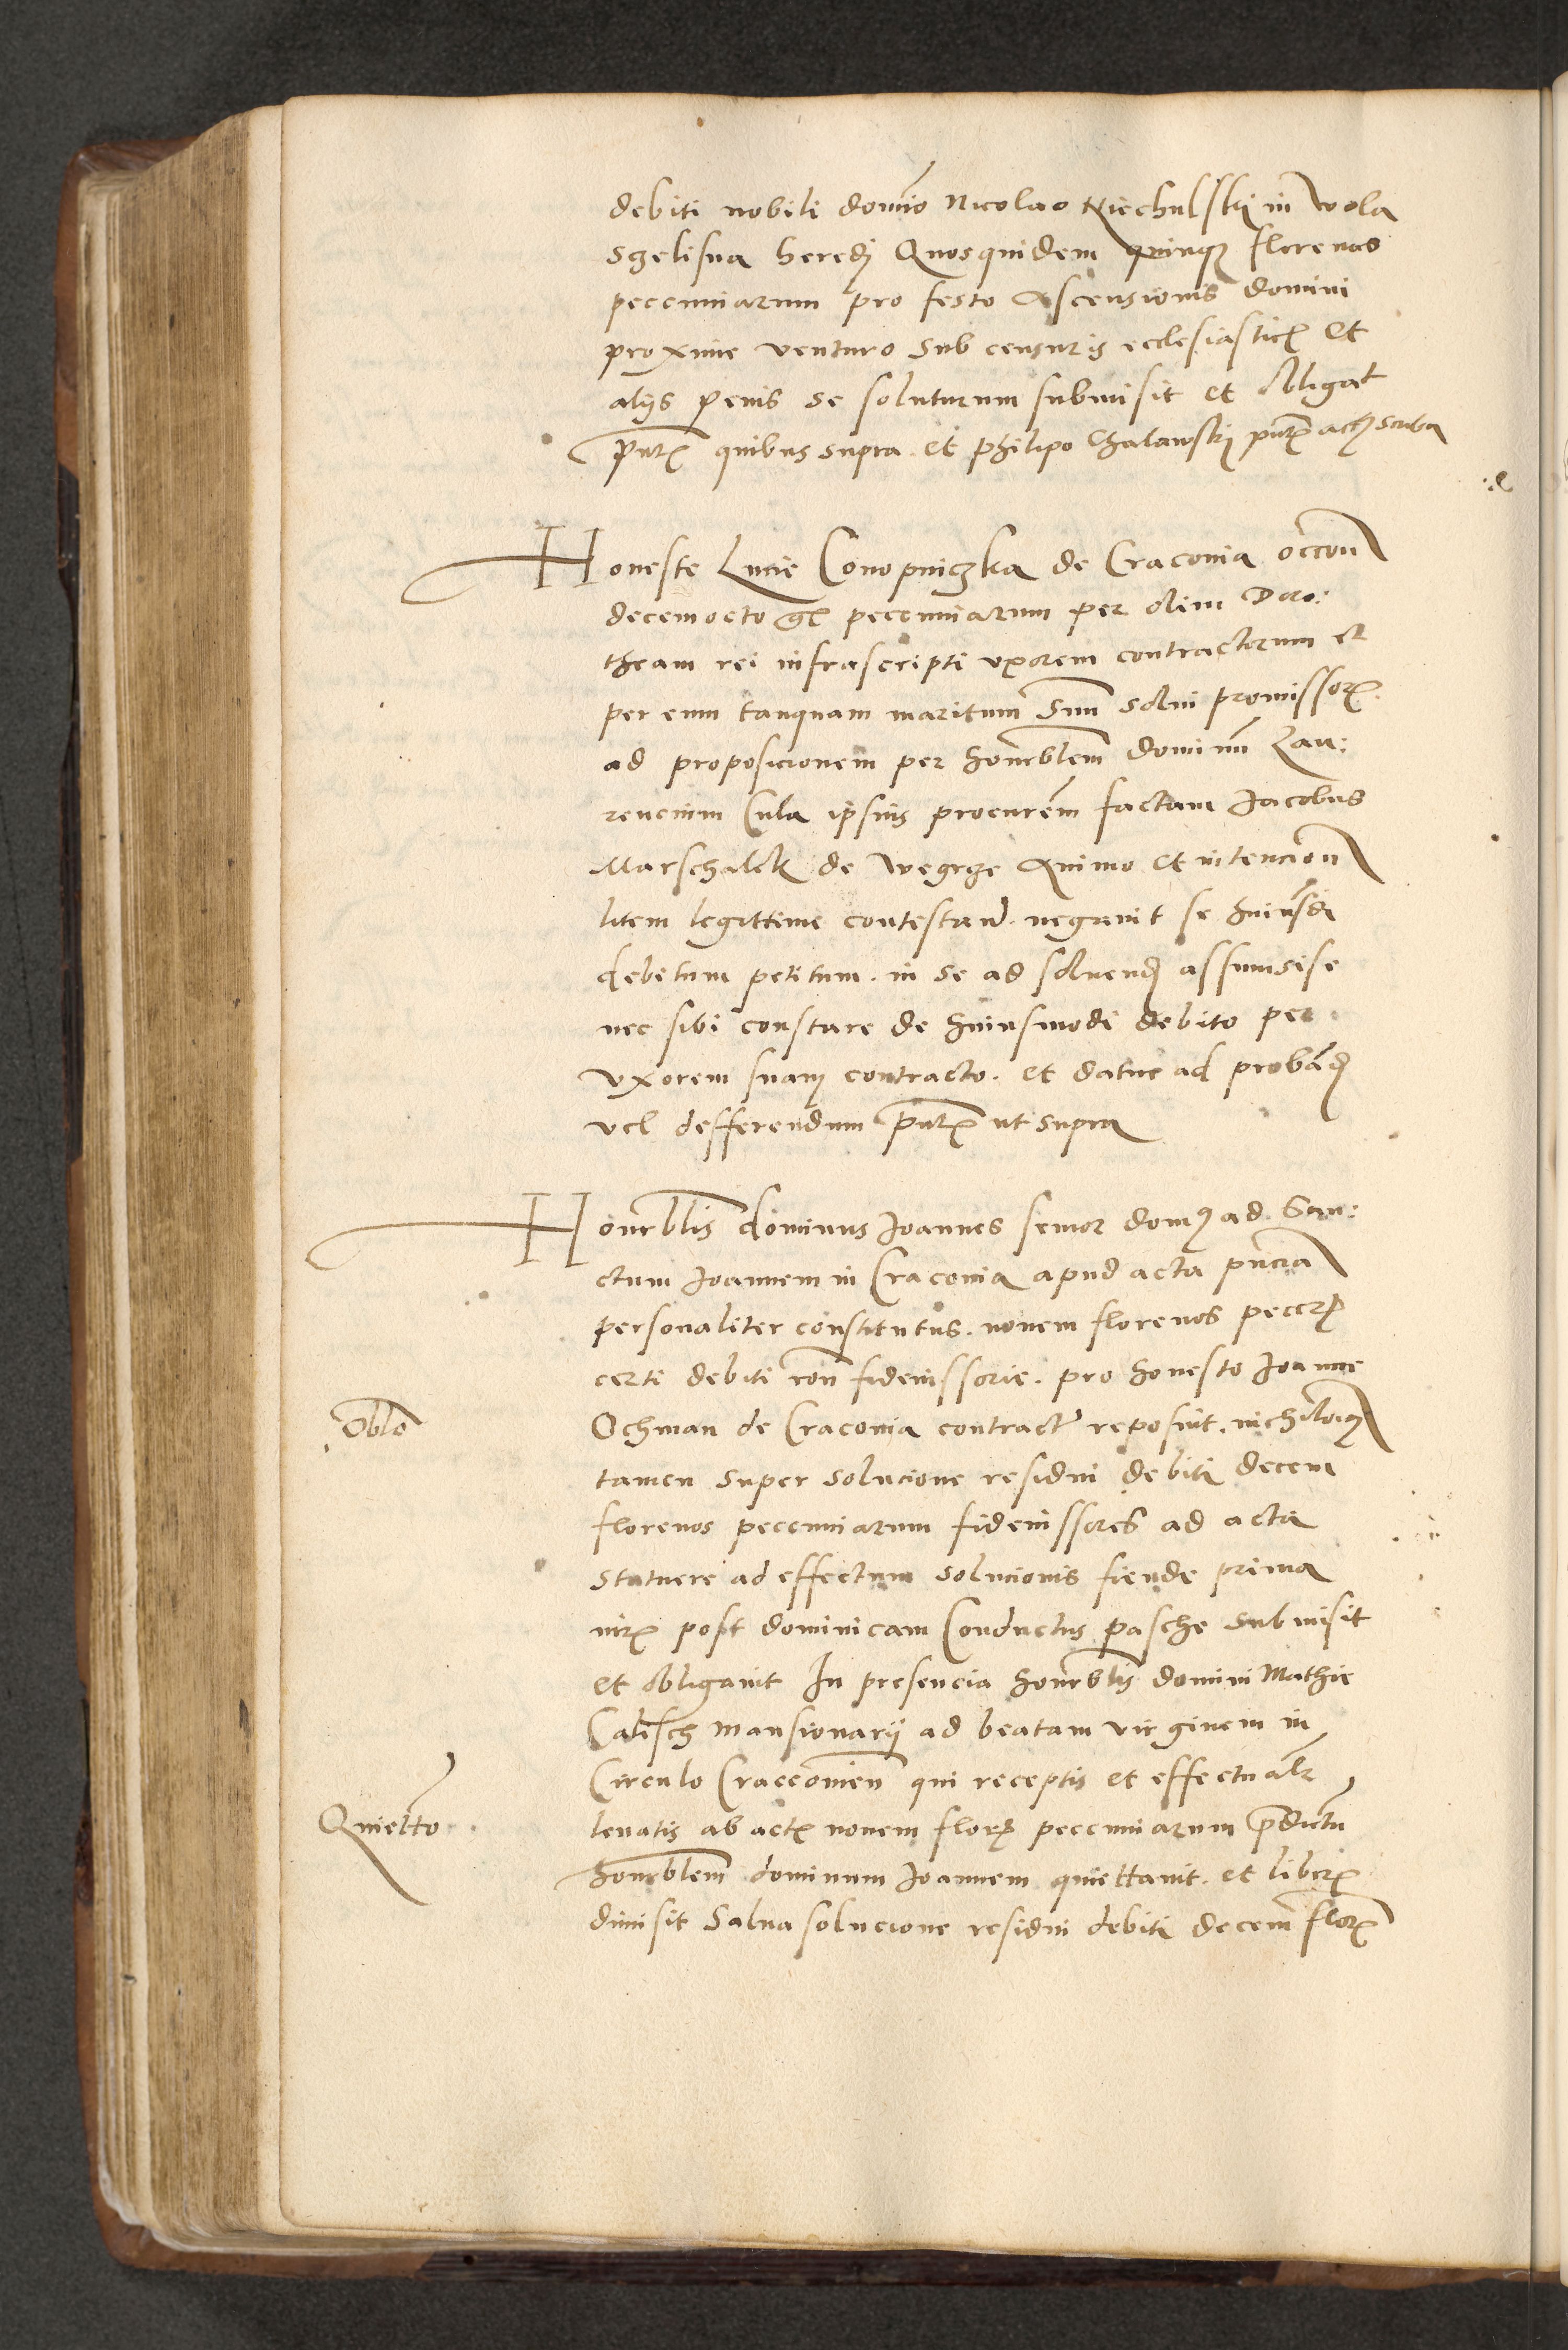 debiti nobili domino Nicolao Niechulski in Wola
Szelisna heredj Quosquidem quinqz florenos
pecuniarum pro festo Ascensionis domini
proxime venturo sub censuris ecclesiastic et
alijs penis se soluturum submisit et obligat
pntˀ quibus supra et Philipo Chalawskj pntˀ actˀ scriba
Honeste Lucie Conopniczka de Cracovia occon
decemocto gˀ pecuniarum per olim Doro:
theam rei infrascripti vxorem contractorum et
per eum tanquam maritum suu solui promissorˀ
ad proposicionem per honorblem dominu Lau:
rencium Cula ipsius procurem factam Jacobus
Marschalck de Wegrze Animo et intencion
litem legittime contestand. negauit se huiusdi
debitum petitum. in se ad soluendˀ assumsise
nec sibi constare de huiusmodi debito per
vxorem suam contracto. et datur ad probandˀ
vel defferendum pntˀ ut supra
Honorblis dominus Joannes senior domˀ ad San:
ctum Joannem in Cracovia apud acta pncia
personaliter constitutus. novem florenos peccrˀ
certi debiti ron fideiussorie. pro honesto Joanne
Oblo
Ochman de Cracovia contractˀ reposuit. nichilomˀ
tamen super solucione residui debiti decem
florenos pecuniarum fideiussores ad acta
statuere ad effectum solucionis fiende prima
iurˀ post dominicam Conductus pasche submisit
et obligauit In presencia honorblis domini Mathie
Calisch mansionarij ad beatam virginem in
Circulo Craccovien qui receptis et effectualr
Quietto
leuatis ab actˀ novem florˀ pecuniarum predictu
honorblem dominum Joannem quiettauit. et liberˀ
dimisit Salua solucione residui debiti decem florˀ